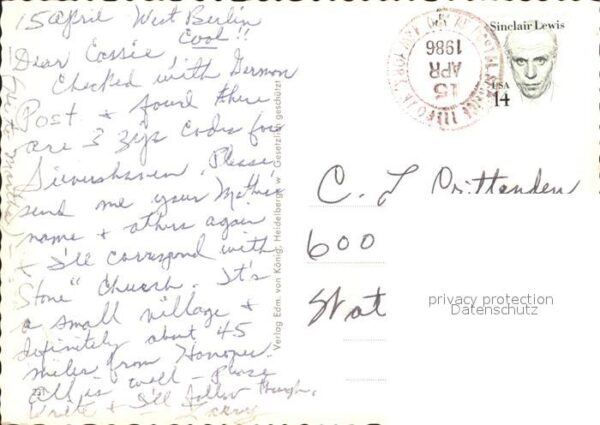 15 April West Berlin
Cool!!
Dear Cassie
Checked with German
Post + found there
are 3 zip codes for
Please
send me your Mother's
name + others again
+ I'll correspond with
"Stone" Church. It's
a small village +
definitely about 45
miles from Hanover.
All is well - Please
write + I'll follow through.
Verlag Edm. von König, Heidelberg · w Gesetzlich geschützt
15
APR
1986
Sinclair Lewis
USA
14
C. L. Crittenden
600
Stat
privacy protection
Datenschutz